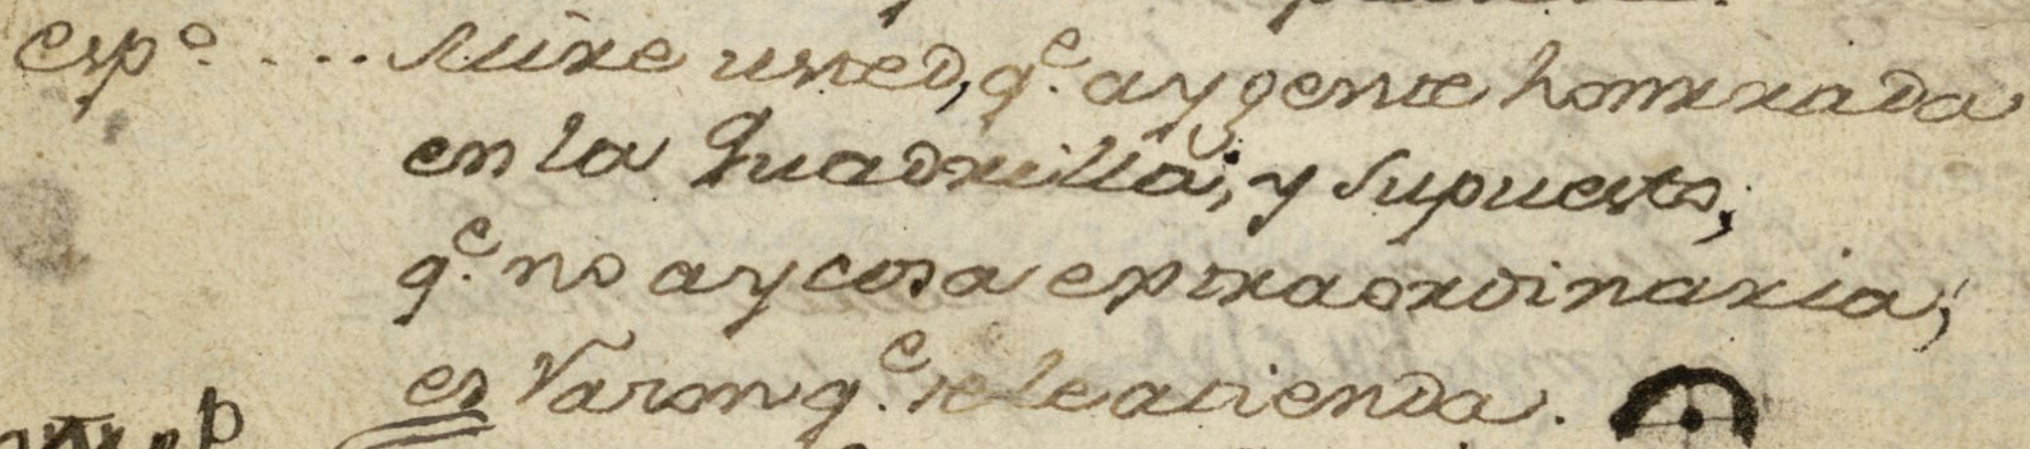 esp.º .... Mire usted, q.e ay gente honrrada
en la Quadrilla; y supuesto,
q.e no ay cosa extraordinaria,
es razon q.e se le atienda.